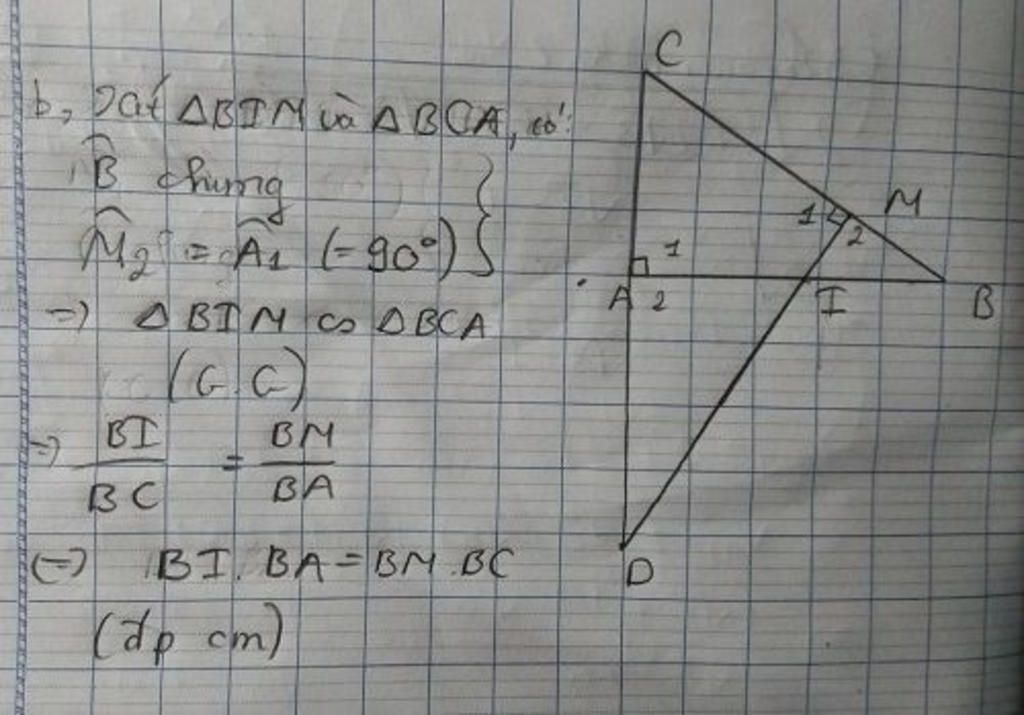 b, Xét △BIM và △BCA, có:
B̂ chung
M̂₂ = Â₁ (=90°) }
=> △BIM ∽ △BCA
(G.G)
=> BI/BC = BM/BA
(=) BI. BA = BM.BC
(đp cm)
C
1 M
2
1
A 2 I B
D